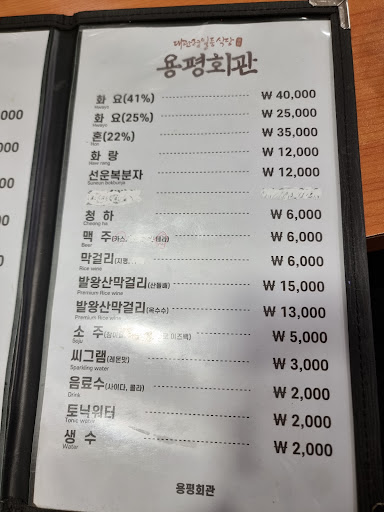 대관령일등식당
용평회관
화 요(41%) ₩ 40,000
화 요(25%) ₩ 25,000
혼(22%) ₩ 35,000
화 랑 ₩ 12,000
선운복분자 ₩ 12,000
청 하 ₩ 6,000
Cheong ha
맥 주(카스, 테라) ₩ 6,000
Beer
막걸리(지평, ₩ 6,000
Rice wine
발왕산막걸리(산돌배) ₩ 15,000
Premium Rice wine
발왕산막걸리(옥수수) ₩ 13,000
Premium Rice wine
소 주 ₩ 5,000
Soju
씨그램(레몬맛) ₩ 3,000
Sparkling water
음료수(사이다, 콜라) ₩ 2,000
Drink
토닉워터 ₩ 2,000
Tonic water
생 수 ₩ 2,000
Water
용평회관